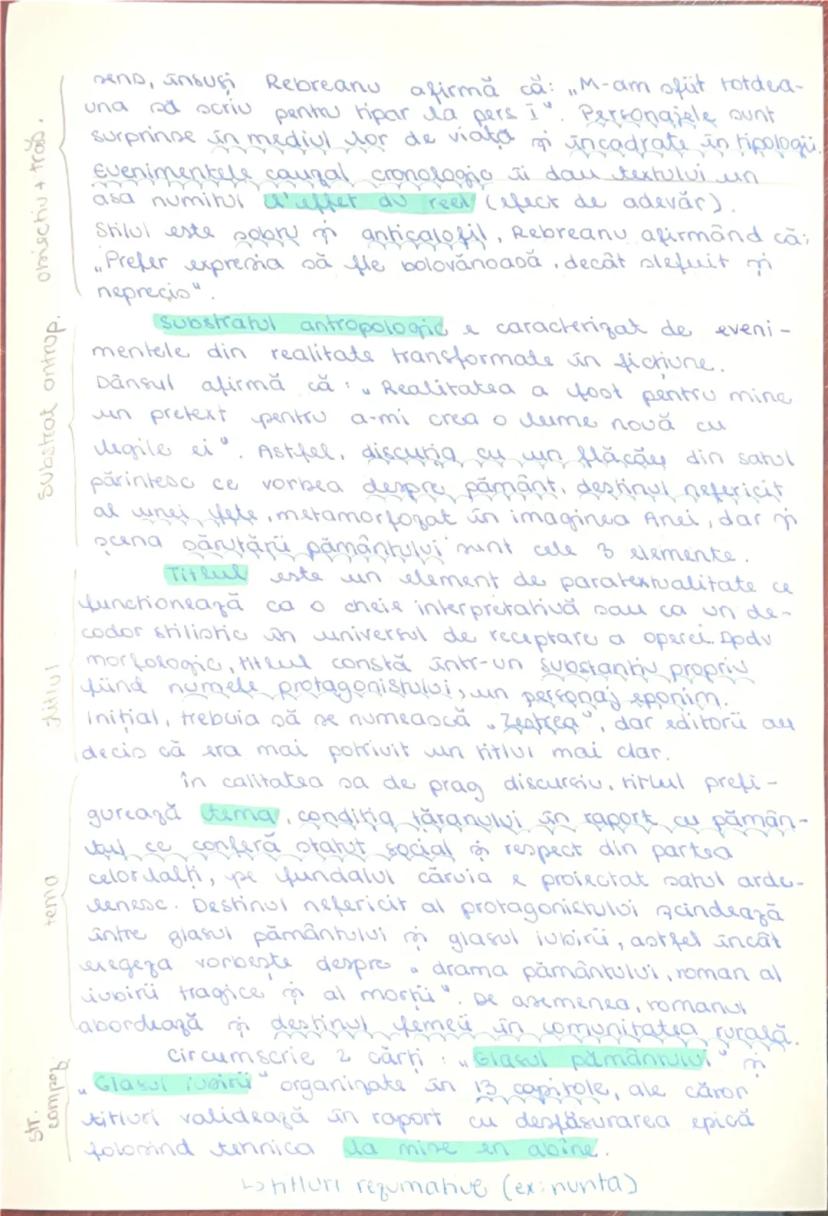 sens, însuși Rebreanu afirmă că: „M-am sfiit totdea-
una să scriu pentru tipar la pers I". Personajele sunt
surprinse în mediul lor de viață și încadrate în tipologii.
Evenimentele cauzal cronologic îi dau textului un
asa numitul l'effet du reel (efect de adevăr).
Stilul este sobru și anticalofil, Rebreanu afirmând că:
„Prefer expresia să fie bolovănoasă, decât slefuit și
neprecis".
Substratul antropologic e caracterizat de eveni-
mentele din realitate transformate în ficțiune.
Dânsul afirmă că: „Realitatea a fost pentru mine
un pretext pentru a-mi crea o lume nouă cu
legile ei". Astfel, discuția cu un flăcău din satul
părintesc ce vorbea despre pământ, destinul nefericit
al unei fete, metamorfozat în imaginea Anei, dar și
scena sărutării pământului sunt cele 3 elemente.
Titlul este un element de paratextualitate ce
funcționează ca o cheie interpretativă sau ca un de-
codor stilistic în universul de receptare a operei. Dpdv
morfologic, titlul constă într-un substantiv propriu
fiind numele protagonistului, un personaj eponim.
Inițial, trebuia să se numească „Zestrea", dar editorii au
decis că era mai potrivit un titlu mai clar.
În calitatea sa de prag discursiv, titlul prefi-
gurează tema, condiția țăranului în raport cu pămân-
tul ce conferă statut social și respect din partea
celorlalți, pe fundalul căruia e proiectat satul arde-
lenesc. Destinul nefericit al protagonistului scindează
între glasul pământului și glasul iubirii, astfel încât
exegeza vorbește despre „drama pământului, roman al
iubirii tragice și al morții". De asemenea, romanul
abordează și destinul femeii în comunitatea rurală.
Circumscrie 2 cărți: „Glasul pământului" și
„Glasul iubirii" organizate în 13 capitole, ale căror
titluri validează în raport cu desfăsurarea epică
folosind tehnica la mise en abîne.
↳ titluri rezumative (ex: nunta)
obiectiv + trăs.
substrat antrop.
titlul
tema
str.
compoz.